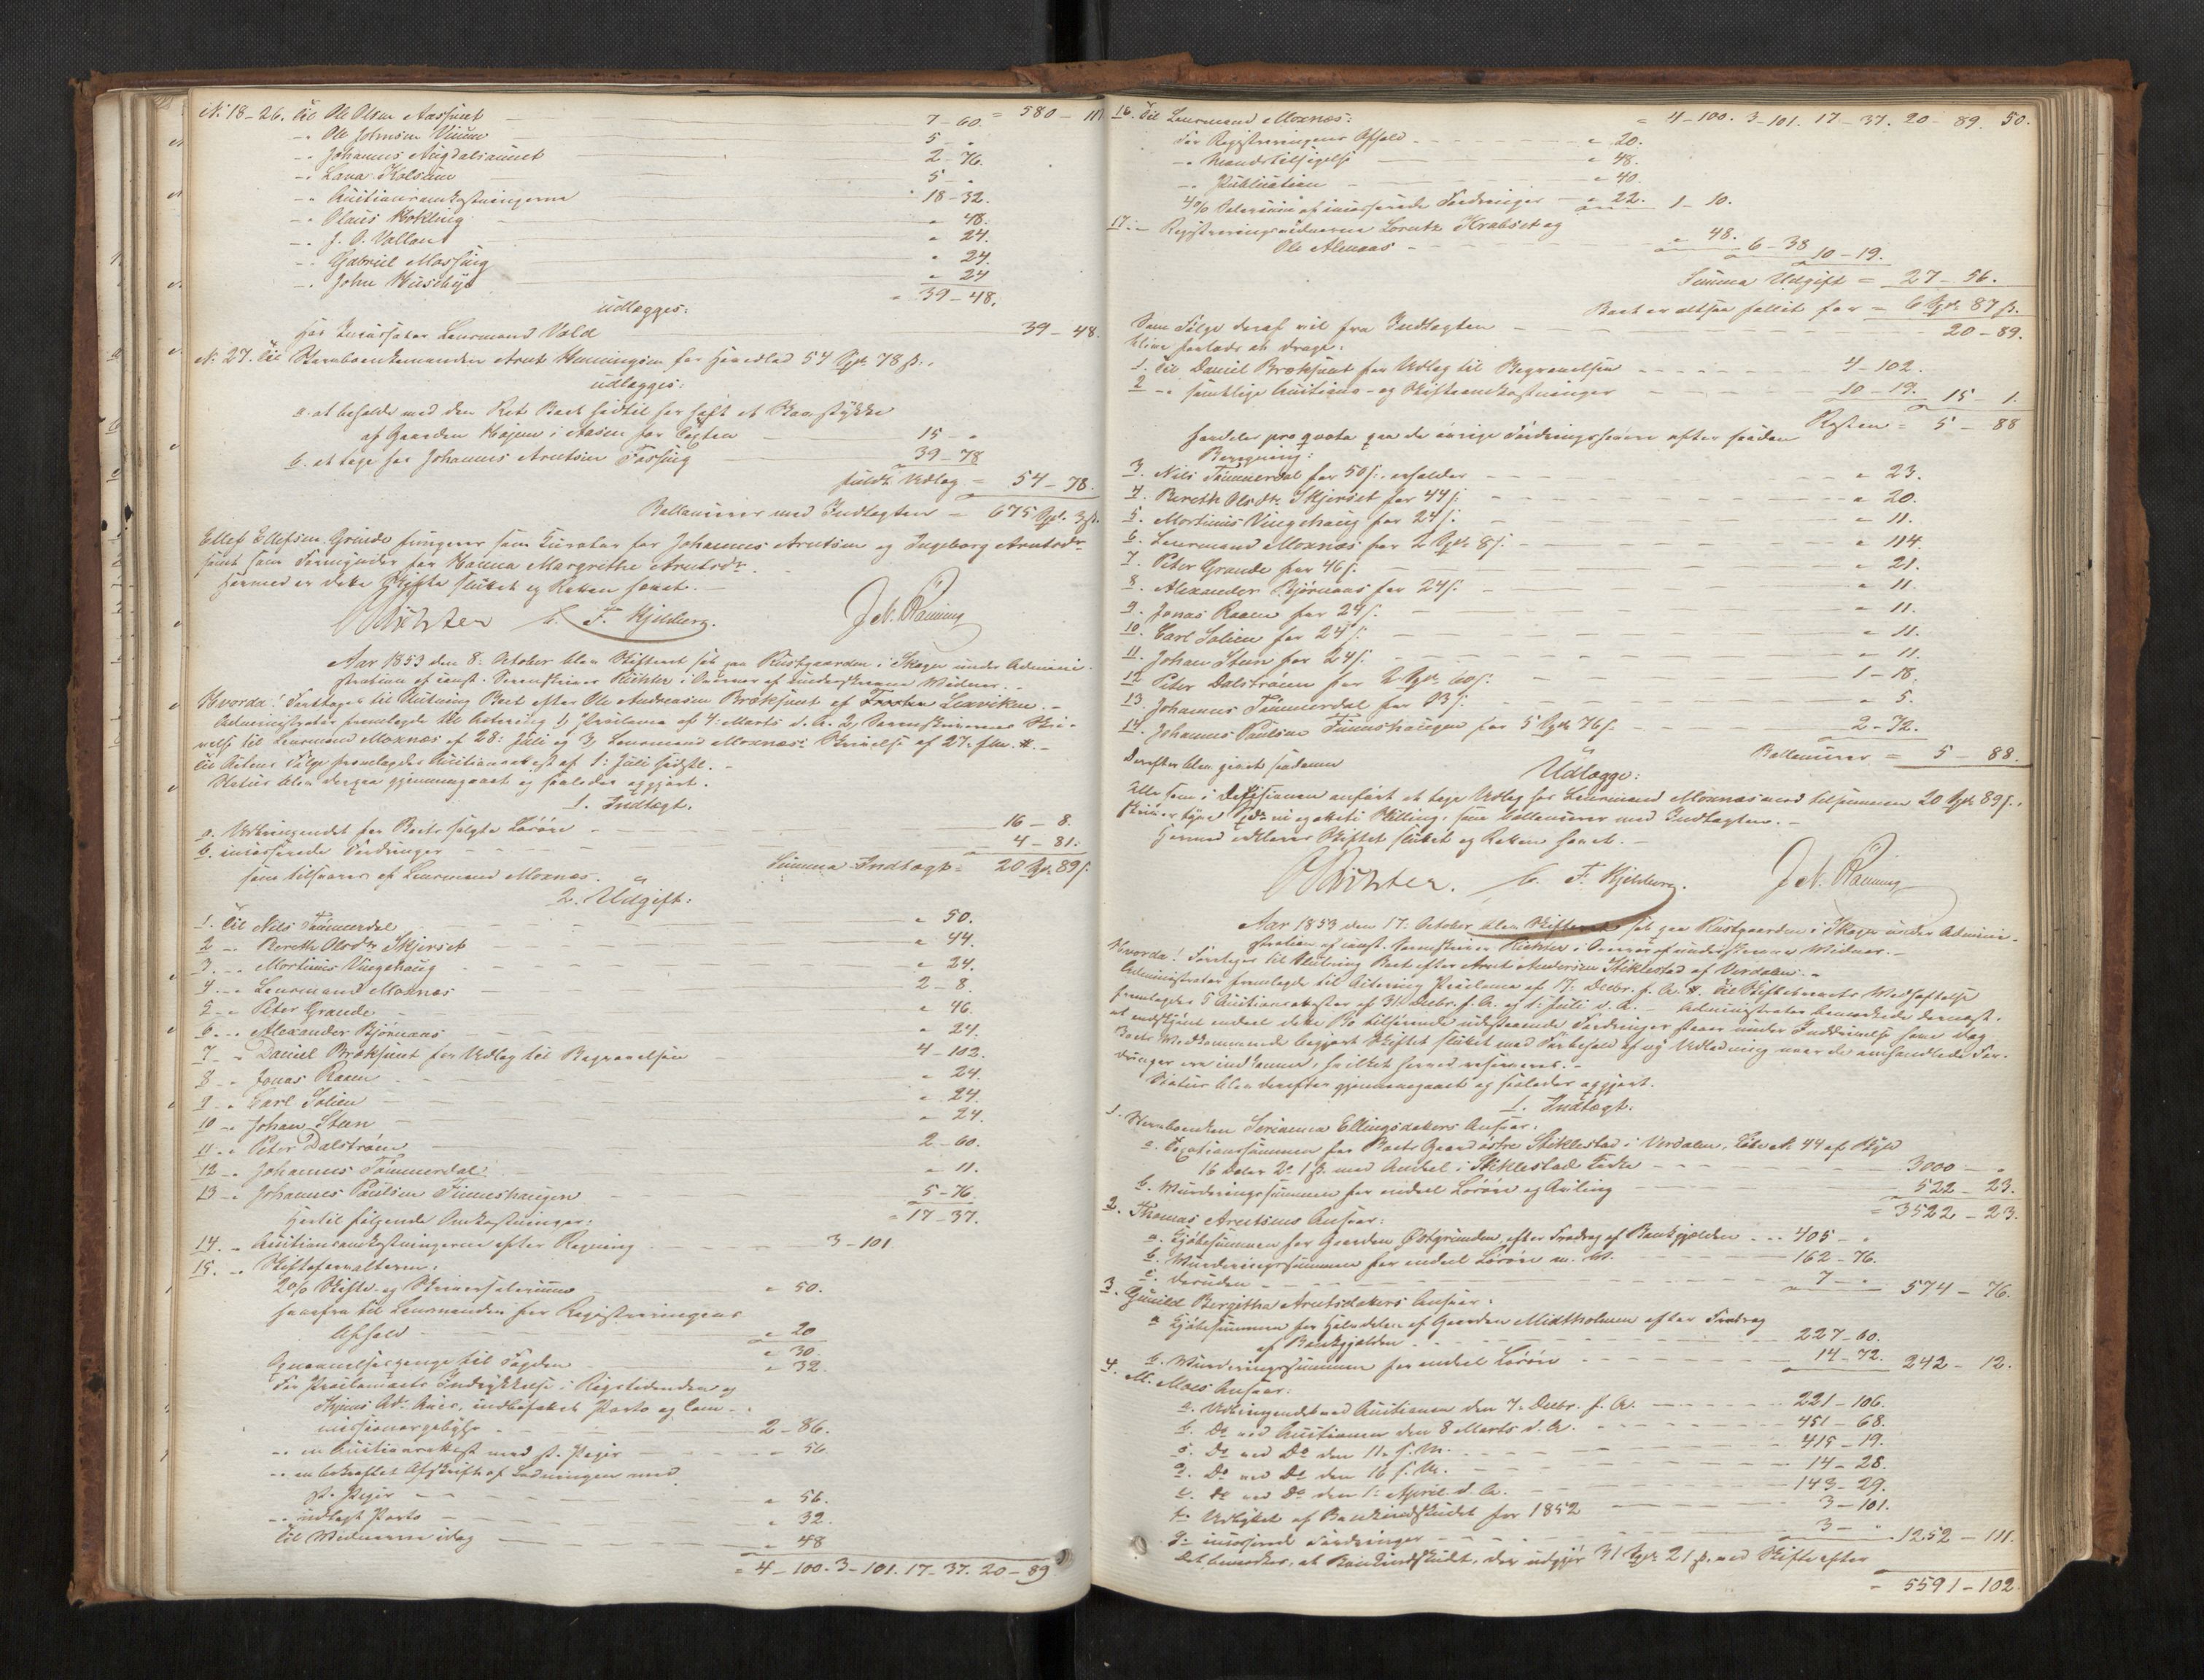 N: 18-26. Til Ole Olsen Aassunet — 7-60. = 580 - 111
-. Ole Johnsen Vinne — 5 - "
-. Johannes Augdalsaunet — 2-76.
-. Lava Kolsum — 5 - "
-. Auctionsomkostningerne — 18-32.
-. Olaus Kokling — " 48.
-. J. O. Vollan — " 24.
-. Gabriel Mossing — " 24.
-. John Huseby — " 24
= 39-48.
udlægges:
Hos Incassator Lensmand Vold — 39-48.
N: 27. Til Stervboenkemanden Arnt Henningsen for Hovedlod 54 Spd. 78 ß.
udlægges:
a. at beholde med den Ret Boet hidtil har havt et Stykke
af Gaarden Hojem i Aasen for Taxten — 15 - "
b. at tage hos Johannes Arntsen Fossing — 39-78
fuldt Udlæg = 54-78.
Ballancerer med Indtægten = 675 Spd. 3 ß.
Ellef Ellefsen Grinde fungerer som Curator for Johannes Arntsen og Ingeborg Arntsdr
samt som Formynder for Hanna Margrethe Arntsdr.
Hermed er dette Skifte sluttet og Retten hævet.
Richter C. F. Hjelberg. J. N. Raming
Aar 1853 den 8: October blev Skifteret sat paa Rustgaarden i Skogn under Admini-
stration af const. Sorenskriver Richter i Overvær af underskrevne Vidner.
Hvorda! Foretages til Slutning Boet efter Ole Andreasen Bræksunet af Frosten Lexviken.
Administrator fremlagde til Actering 1, Proclama af 4: Marts d. A. 2, Sorenskriverens Skri-
velse til Lensmand Moxnæs af 28: Juli og 3, Lensmand Moxnæs: Skrivelse af 27. f.M. #.
Til Actens Følge fremlagdes Auctionsakt af 1: Juli sidstl.
Status blev derpaa gjennemgaaet og saaledes opgjort.
1. Indtægt.
a. Udbringendet for Boets solgte Løsøre — 16-8.
b. incasserede Fordringer — 4-81.
som tilsvares af Lensmand Moxnæs. Summa Indtægt = 20 Spd. 89 ß.
2. Udgift:
1. Til Nils Tømmerdal — " 50.
2 -. Bereth Olsdtr Skjerset — " 44.
3. -. Mortinus Vingehaug — " 24.
4. -. Lensmand Moxnæs — 2-8.
5 -. Peter Grande — " 46.
6. -. Alexander Bjørnaas — " 24.
7 -. Daniel Bræksunet for Udlæg til Begravelsen — 4-102.
8 -. Jonas Raaen — " 24.
9 -. Carl Solien — " 24.
10 -. Johan Steen — " 24.
11 -. Peter Dalstrøen — 2-60.
12 -. Johannes Tømmerdal — " 11.
13 -. Johannes Paulsen Tinneshaugen — 5-76
Hertil følgende Omkostninger: = 17-37.
14. -. Auctionsomkostningerne efter Regning — 3-101
15. -. Skifteforvalteren:
2% Skifte- og Skriversalarium — " 50.
herefra til Lensmanden for Registreringens
Afhold — " 20
" 30.
Opnævnelsespenge til Fogden — " 32.
For Proclamaets Indrykkelse i Rigstidenden og
Thjems Ad: Avis, indbefattet Porto og Com-
missionærgebyhr — 2-86.
-. en Auctionsakt med st. Papir — " 56
-. en bekræftet Afskrift af Ladningen med
st. Papir — " 56.
-. udlagt Porto — " 32.
Til Vidnerne idag — " 48
= 4-100. 3-101. 17-37. 20-89
16. Til Lensmand Moxnæs: = 4-100. 3-101. 17-37. 20-89. 50.
For Registreringens Afhold — " 20.
-. Mandstilsigelse — " 48.
-. Publication — " 40.
4% Salarium af incasserede Fordringer — " 22. 1-10.
17. - Registreringsvidnerne Lorentz Krabset og
Ole Almaas — " 48. 6-38 10-19.
Summa Udgift = 27-56.
Boet er altsaa fallit for = 6 Spd. 87 ß.
Som Følge deraf vil fra Indtægten — 20-89.
blive forlods at drage:
1. Til Daniel Bræksunet for Udlæg til Begravelsen — 4-102.
2 -. samtlige Auctions- og Skifteomkostninger — 10-19. 15-1.
Resten = 5-88
fordeles pro qvota paa de øvrige Fordringshavere efter saadan
Beregning:
3. Nils Tømmerdal for 50 ß., erholder — " 23.
4. Bereth Olsdtr. Skjerset for 44 ß. — " 20.
5. Mortinus Vingehaug for 24 ß. — " 11.
6. Lensmand Moxnæs for 2 Spd. 8 ß. — " 114.
7. Peter Grande for 46 ß. — " 21.
8. Alexander Bjørnaas for 24 ß. — " 11.
9. Jonas Raaen for 24 ß. — " 11.
10. Carl Solien for 24 ß. — " 11.
11. Johan Steen for 24 ß. — " 11.
12 Peter Dalstrøen for 2 Spd. 60 ß. — 1-18.
13. Johannes Tømmerdal for 13 ß. — " 5.
14. Johannes Paulsen Tinneshaugen for 5 Spd. 76 ß. — 2-72.
Ballancerer = 5-88.
Derefter blev gjort saadanne
Udlægge:
Alle som i Divisionen anført at tage Udlæg hos Lensmand Moxnæs med tilsammen 20 Spd. 89 ß.,
skriver tyve Spd. ni og otteti Skilling, som ballancerer med Indtægten.
Hermed erklæres Skiftet sluttet og Retten hævet.
Richter. C. F. Hjelberg. J. N. Raming
Aar 1853 den 17: October blev Skifteret sat paa Rustgaarden i Skogn under Admini-
stration af const. Sorenskriver Richter i Overvær af underskrevne Vidner.
Hvorda! Foretages til Slutning Boet efter Arnt Andersen Stiklestad af Verdalen.
Administrator fremlagde til Actering Proclama af 7: Decbr. f. A. #. Til Skiftebrevets Vedhæftelse
fremlagdes 5 Auctionsakter af 31. Decbr. f. A. og 1. Juli d. A. Administrator bemærkede dernæst,
at endskjønt endeel dette Bo tilhørende udestaaende Fordringer staar under Inddrivelse have dog
Boets Vedkommende begjært Skiftet sluttet med Forbehold af ny Udlodning naar de omhandlede For-
dringer ere indkomne, hvilket herved reserveres.
Status blev derefter gjennemgaaet og saaledes opgjort.
1. Indtægt.
1. Stervboenken Sirianna Ellingsdatters Ansvar:
a. Taxationssummen for Boets Gaard østre Stiklestad i Verdalen, Løbe N 44 af Skyld
16 Daler 2. 1 ß. med Andel i Stiklestad Field — 3000 - "
b. Vurderingssummen for endeel Løsøre og Avling — 522-23.
= 3522-23.
2. Thomas Arntsens Ansvar:
a. Kjøbesummen for Gaarden Østgrunden, efter Fradrag af Bankgjælden — 405 - "
b. Vurderingssummen for endeel Løsøre m.M. — 162-76.
c. desuden — 7 - " 574-76.
3. Gunild Bergitha Arntsdatters Ansvar:
a Kjøbesummen for Halvdelen af Gaarden Midtholmen efter Fradrag
af Bankgjælden — 227-60.
b. Vurderingssummen for endeel Løsøre — 14-72. 242-12.
4. M. Moes Ansvar:
a. Udbringendet ved Auctionen den 7. Decbr. f. A. — 221-106.
b. Do ved Auctionen den 8 Marts d. A. — 451-68.
c. Do ved Do den 11. s. M. — 415-19.
d. Do ved Do den 16 s. M. — 14-28.
e. Do ved Do den 1. April d. A. — 143-29.
f. Udbyttet af Bankindskudet for 1852 — 3-101.
g. incasserede Fordringer — 3 - " 1252-111.
Det bemærkes, at Bankindskudet, der udgjør 31 Spd. 21 ß. ved Skifte efter
= 5591-102